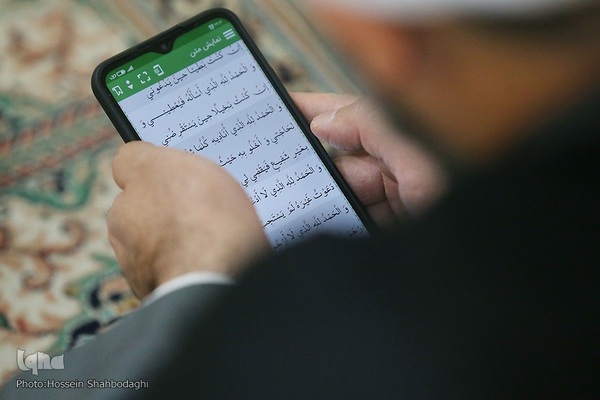 نمایش متن
اَنت كُنتُ بَطيئا حينَ يَدعُوني
وَ الْحَمْدُ للهِ الَّذي أَسأَلُهُ فَيُعْطيـــني وَ
اِنْت كُنْتُ بَخيلًا حينَ يَسْتَقْرِضُني
وَ الْحَمْدُ للهِ الَّذي أُناديهِ كُلَّما
لِحاجَتي وَ أَخْلُو بِهِ حَيْثُ
بِغَيْرِ شَفيعٍ فَيَقْضي لي
وَ الْحَمْدُ للهِ الَّذي لا
دَعَوْتُ غَيْرَهُ لَمْ يَسْتَجِبْ
وَ الْحَمْدُ للهِ الَّذي لا
iqna
Photo:Hossein Shahbodaghi